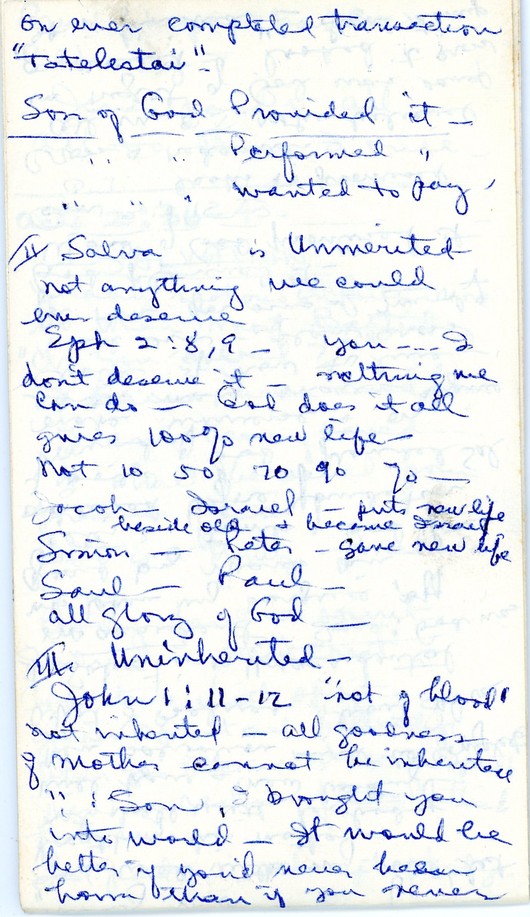 on ever completed transaction
"Tatelestai".
Son of God Provided it —
" " " Performed "
" " " wanted to pay '
II Salva is Unmerited
not anything we could
ever deserve
Eph 2:8,9 — you --- I
don't deserve it — nothing we
can do — God does it all
gives 100% new life —
Not 10 50 70 90 % —
Jacob — Israel — puts new life
beside old & became Israel
Simon — Peter — gave new life
Saul — Paul —
all glory of God —
III. Uninherited —
John 1:11-12 "not of blood"
not inherited — all goodness
of Mother cannot be inherited
" : Son, I brought you
into world — It would be
better if you'd never been
born than if you never